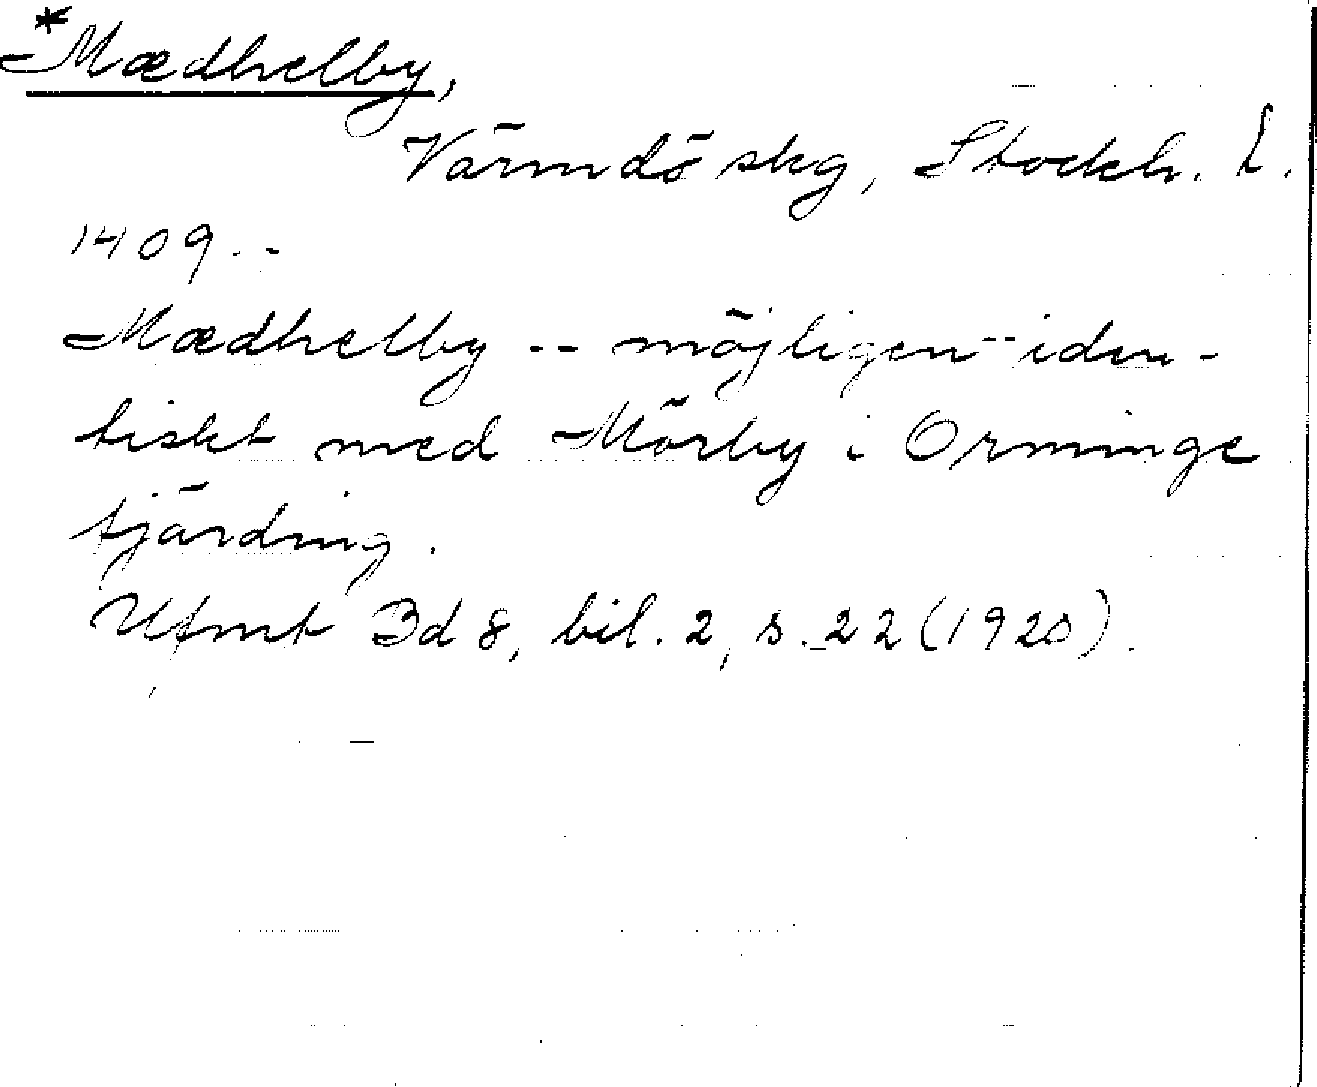 *Mædhelby,
Värmdö skg, Stockh. l.
1409 --
Mædhelby -- möjligen -- iden-
tiskt med Mörby i Orminge
fjärding.
Ufmt Bd 8, bil. 2, s. 22 (1920).